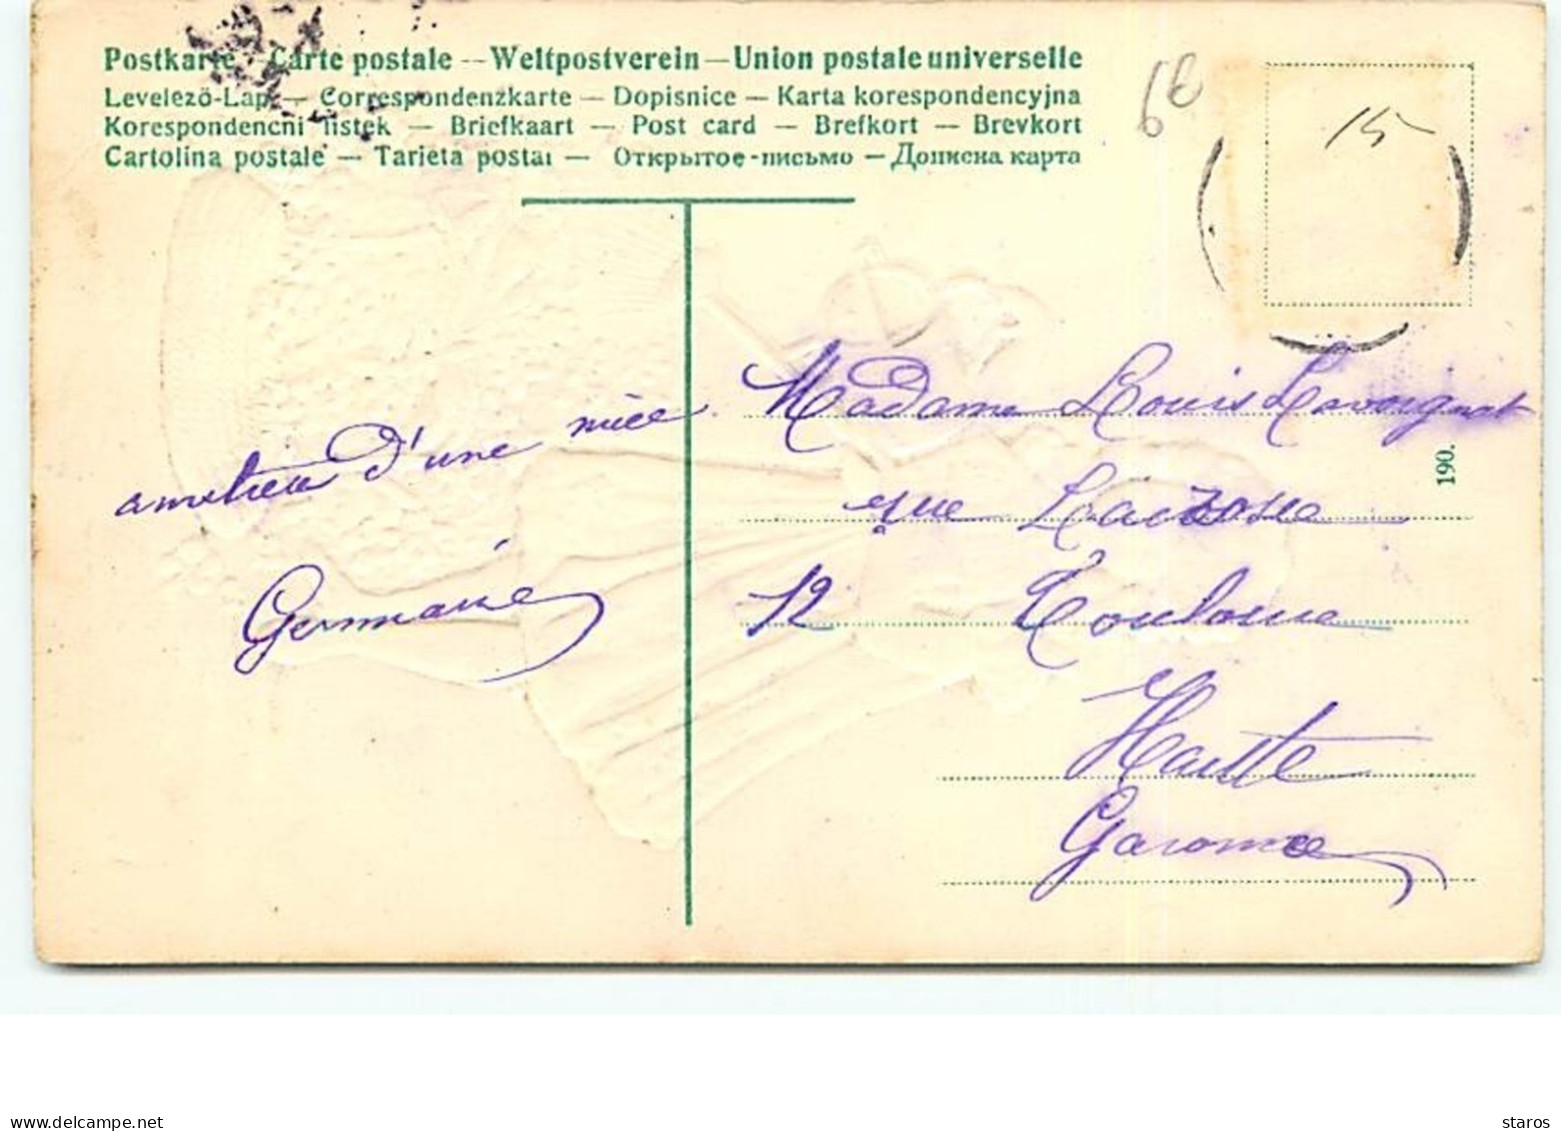 Postkarte - Carte postale -- Weltpostverein — Union postale universelle
Levelezö-Lap — Correspondenzkarte — Dopisnice — Karta korespondencyjna
Korespondencni listek — Briefkaart — Post card — Brefkort — Brevkort
Cartolina postale — Tarieta postal — Открытое-письмо — Дописна карта
6€
15
d'une nièce
Germaine
Madame Louis Lavergnat
rue
12 Toulouse
Haute
Garonne
190.
delcampe.net
staros